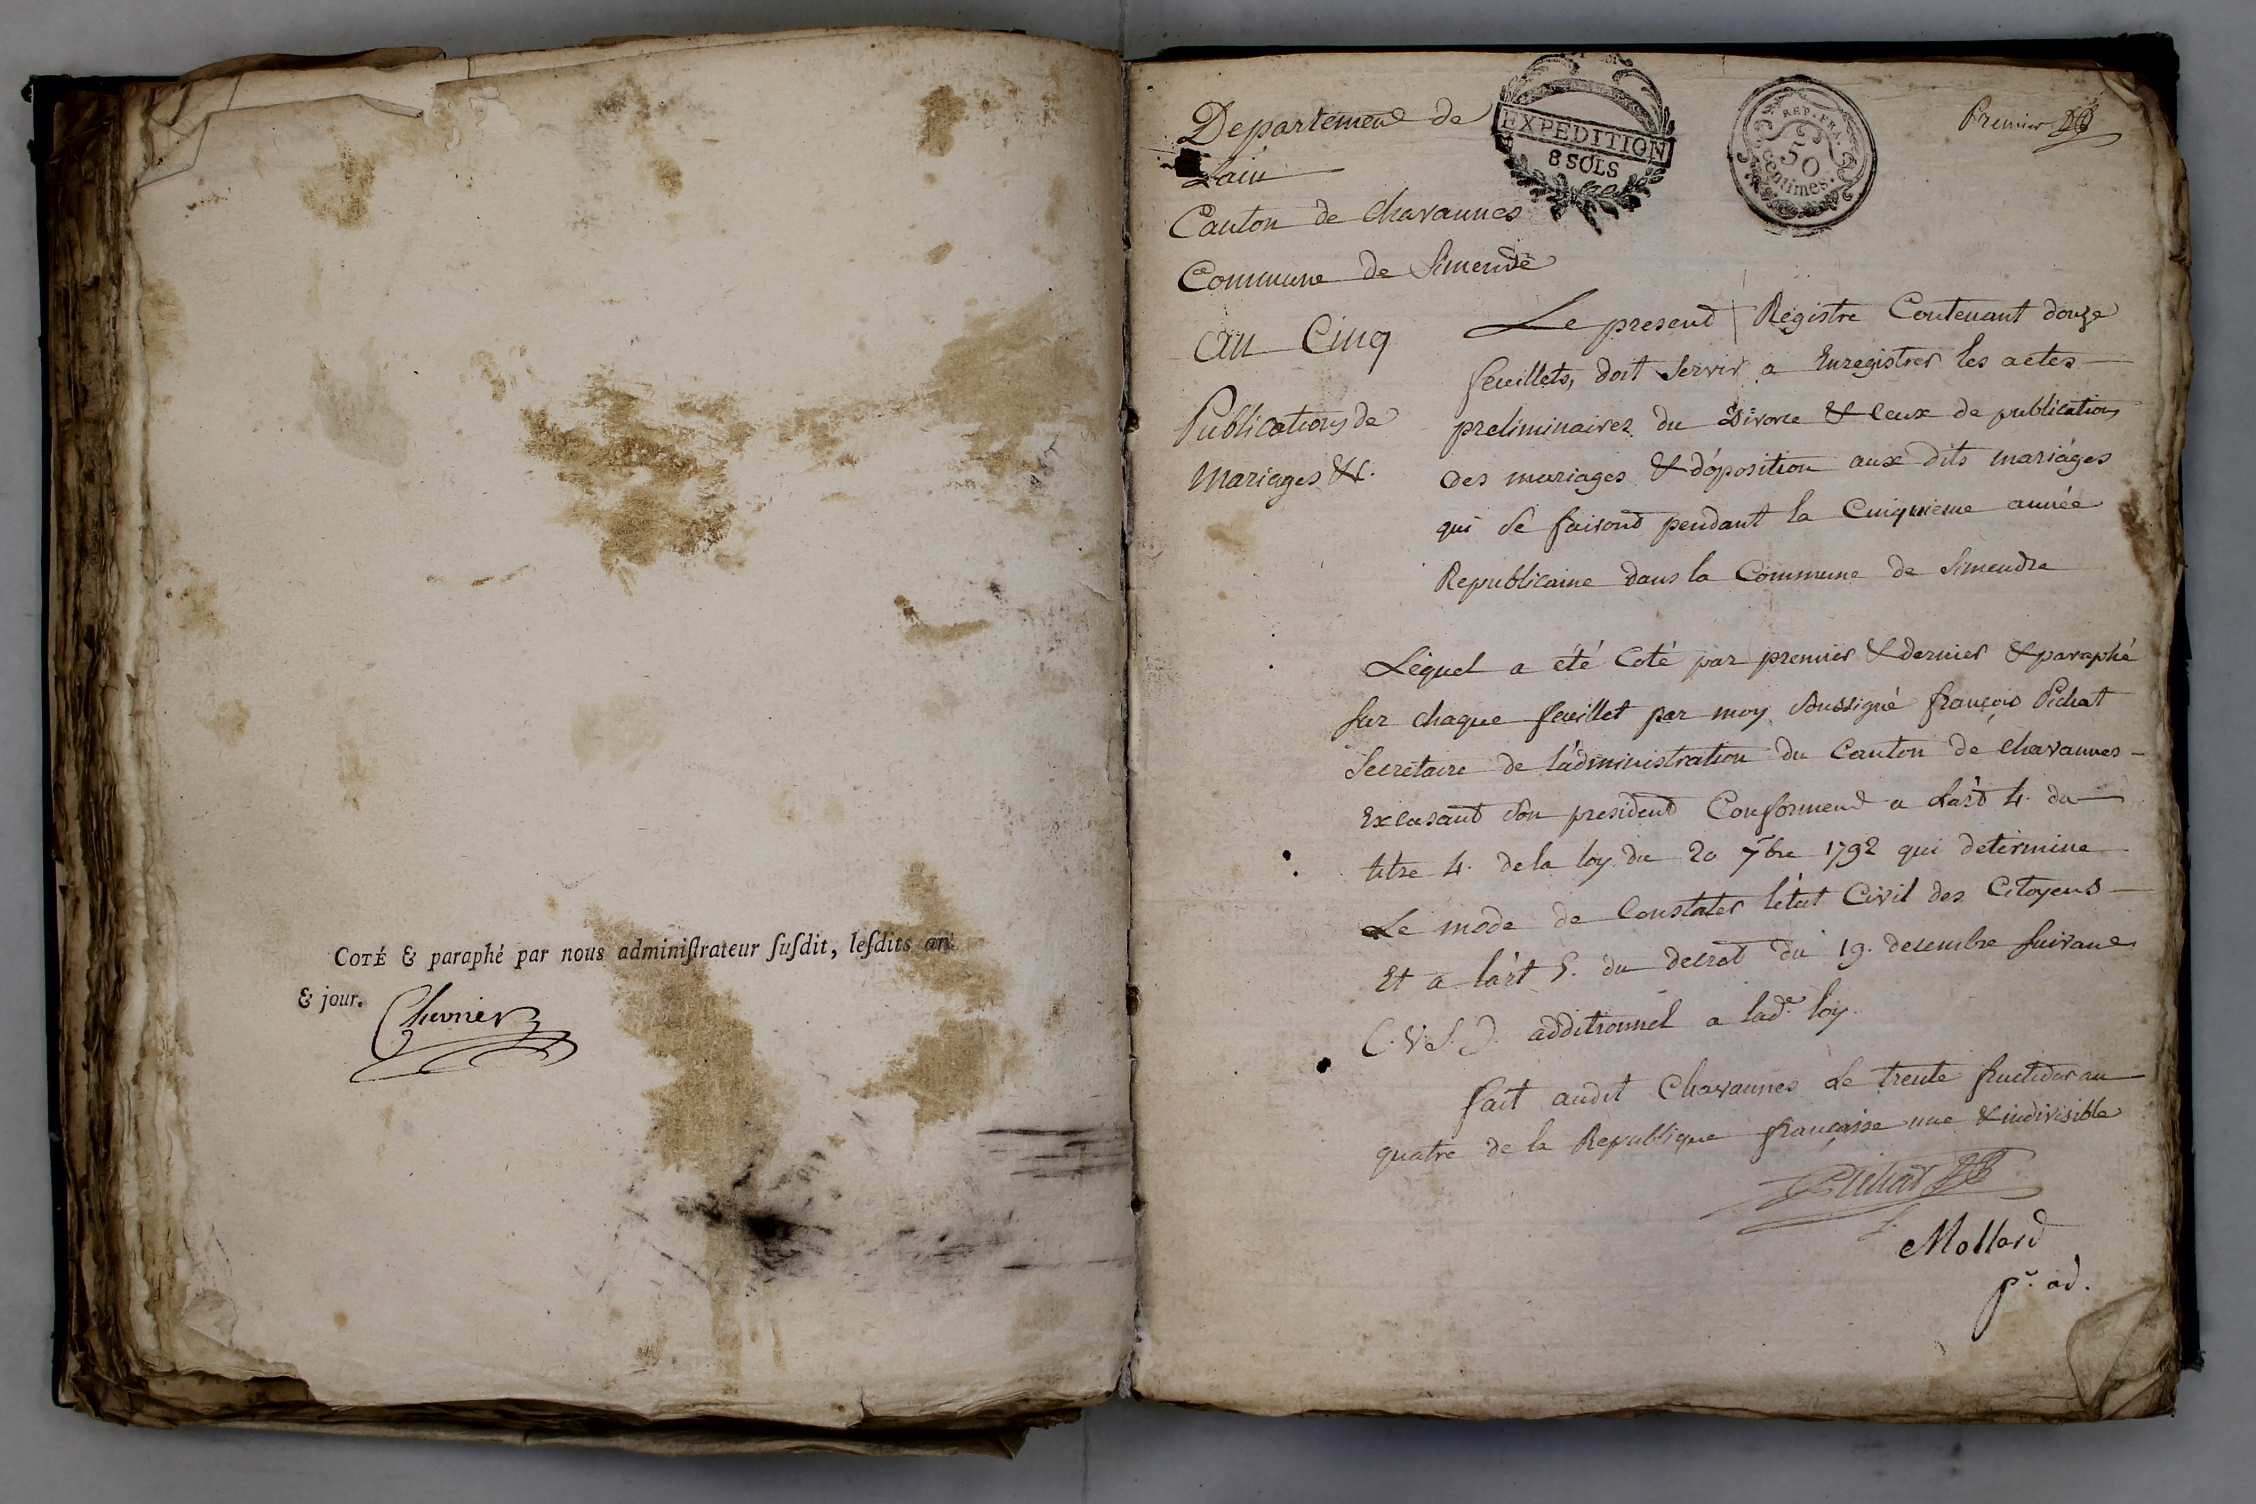 COTÉ & paraphé par nous adminiſtrateur ſuſdit, leſdits an
& jour.
Chevrier
Departement de
Lain
EXPEDITION
8 SOLS
REP. FRA.
50
centimes.
Premier
Canton de Chavannes
Commune de Simendre
an Cinq
Publications de
Mariages &c.
Le present Registre Contenant douze
feuillets, doit Servir a Enregistrer les actes
preliminaires du Divorce & Ceux de publications
des mariages & d'oposition aux dits mariages
qui Se fairont pendant la Cinquieme année
Republicaine dans la Commune de Simendre
Lequel a été Coté par premier & dernier & paraphé
Sur chaque feuillet par moy Soussigné françois Pichat
Secretaire de l'administration du Canton de Chavannes
Excusant Son president Conforment a L'art 4. du
titre 4. de la loy du 20 7bre 1792 qui determine
Le mode de Constater l'état Civil des Citoyens
Et a l'art 5. du decret du 19. decembre Suivant
C. V. S. D. additionnel a lade. loy.
fait audit Chavannes Le trente fructidor an
quatre de la Republique française une & indivisible
Pichat
Mollard
pr. ad.